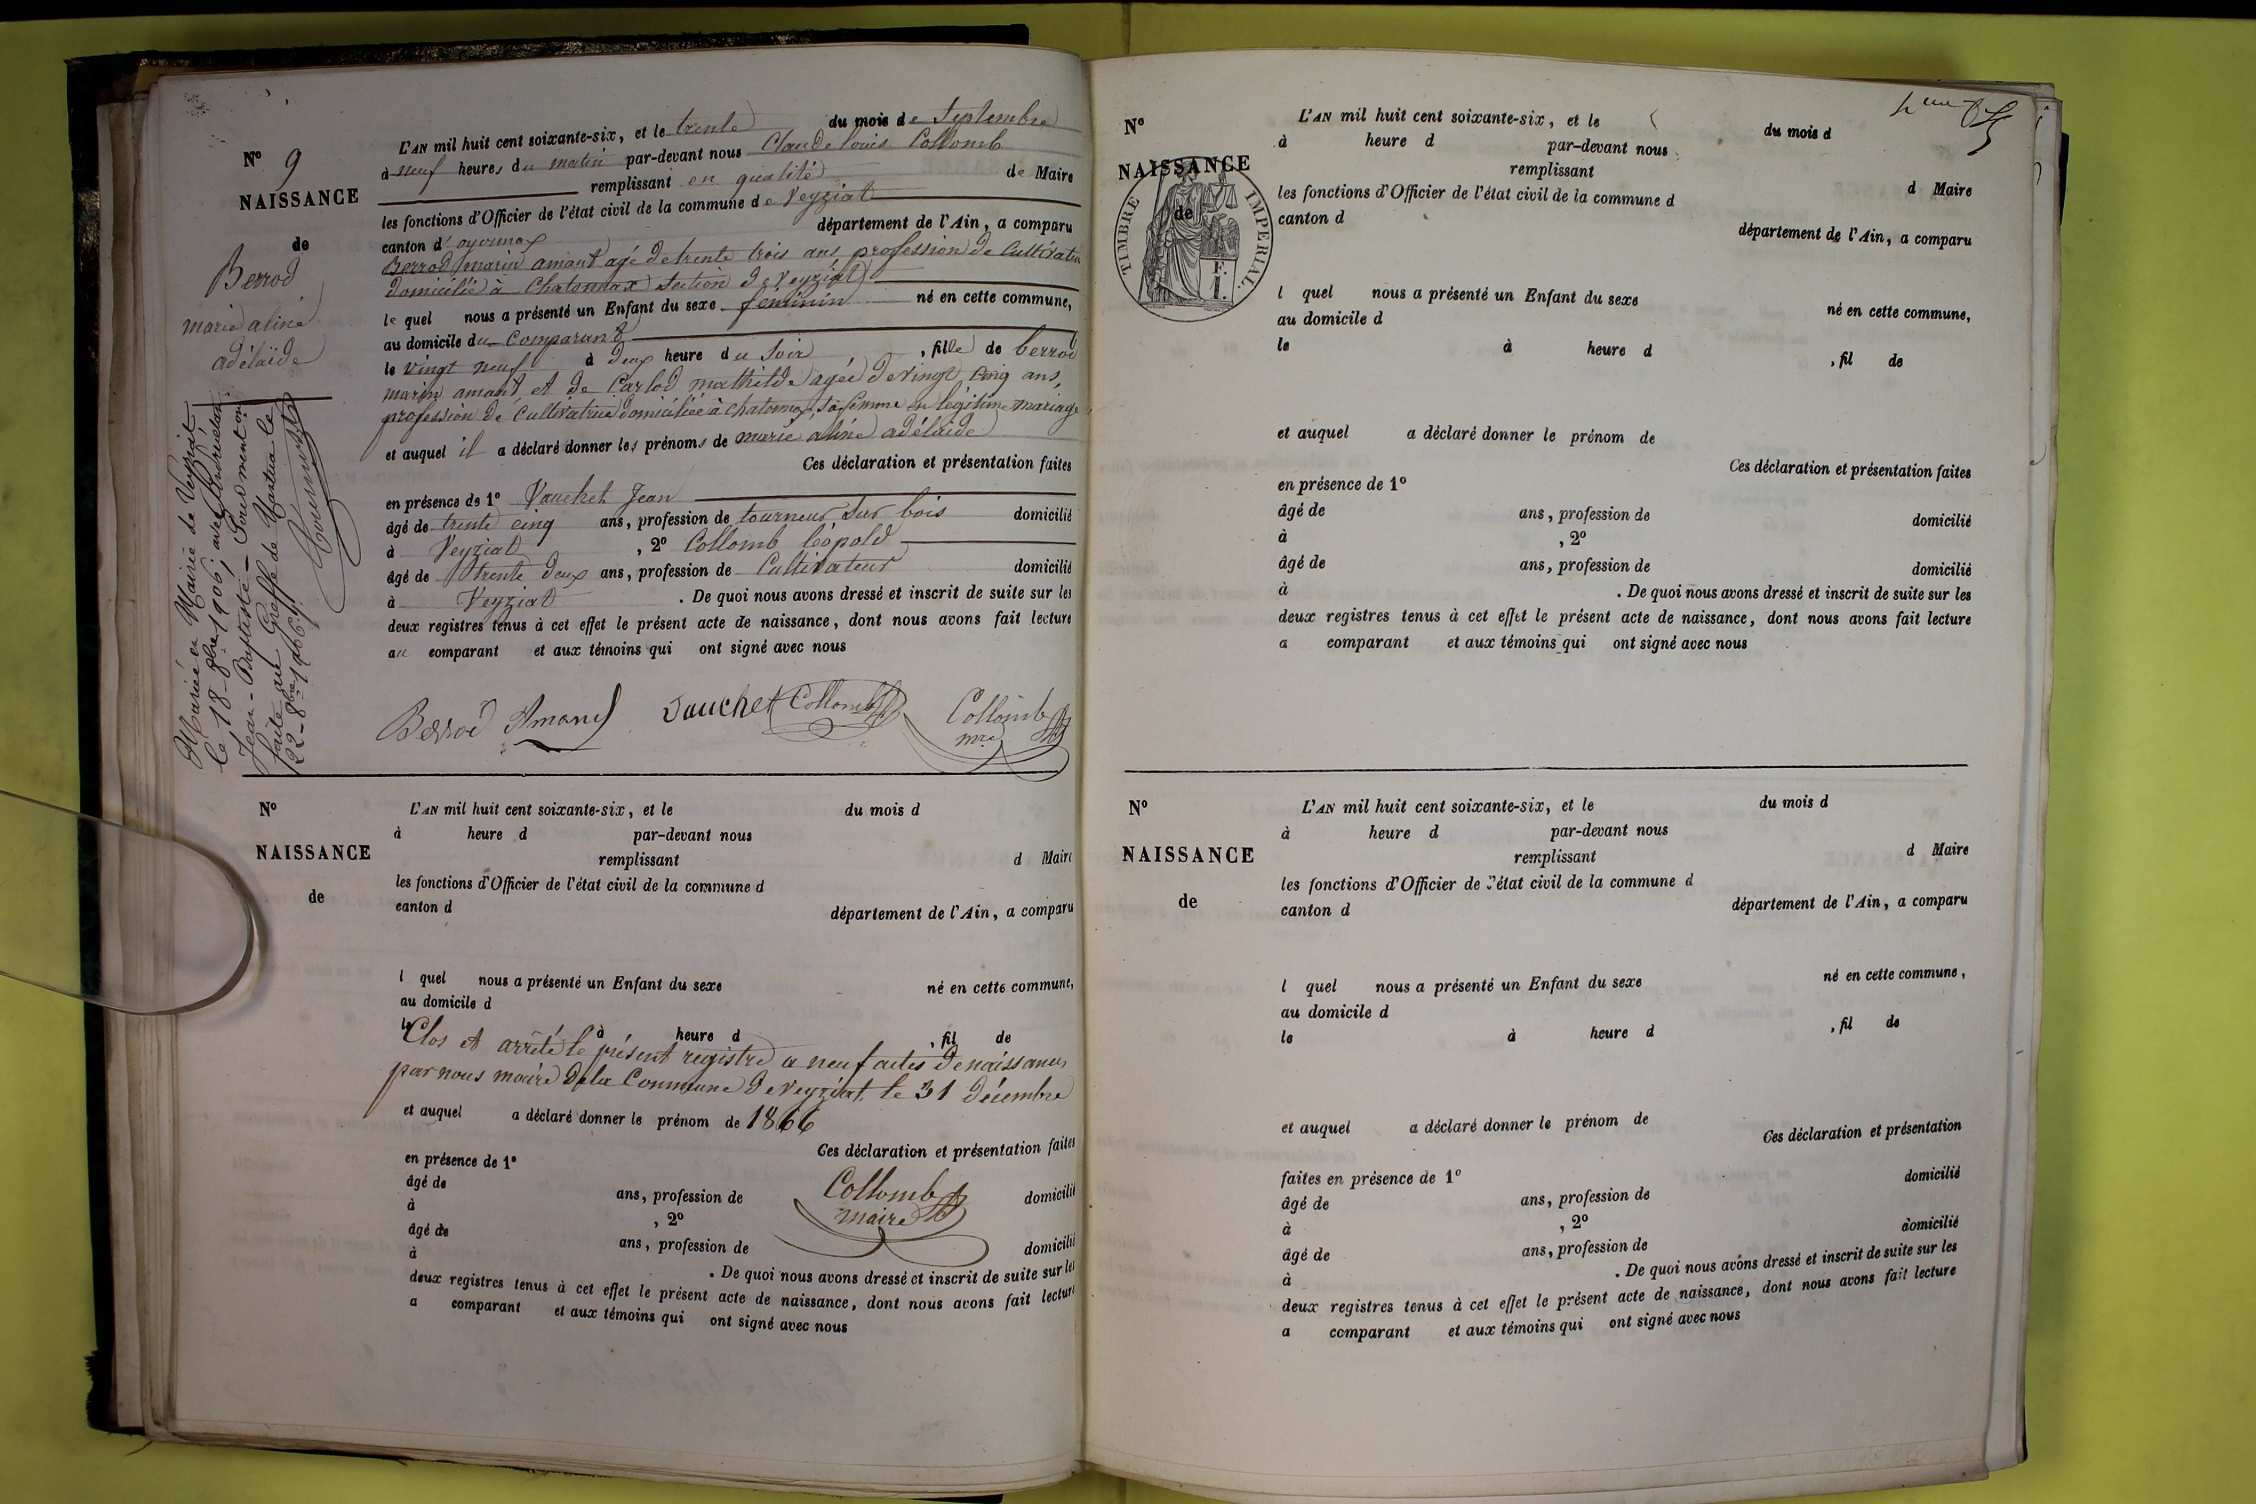 N° 9
NAISSANCE
de
Berrod
marie aline
adélaïde
Mariée en Mairie de Veyziat
le 18 - 8bre 1906, avec
Jean-Baptiste - Mention
faite au Greffe de Nantua le
22 - 8bre 1906
L'AN mil huit cent soixante-six, et le trente du mois de Septembre
à neuf heures du matin par-devant nous Claude louis Collomb
remplissant en qualité de Maire
les fonctions d'Officier de l'état civil de la commune de Veyziat
canton d'oyonnax département de l'Ain, a comparu
Berrod marin amant agé de trente trois ans profession de Cultivateur
domicilié à Chatonnax section de Veyziat
le quel nous a présenté un Enfant du sexe feminin né en cette commune,
au domicile du Comparant
le vingt neuf à deux heure du Soir, fille de berrod
marin amant et de Carlod mathilde agée de vingt cinq ans,
profession de Cultivatrice domiciliée à chatonnax, sa femme en légitime mariage
et auquel il a déclaré donner les prénoms de marie aline adélaïde
Ces déclaration et présentation faites
en présence de 1° Vauchet Jean
âgé de trente cinq ans, profession de tourneur sur bois domicilié
à Veyziat, 2° Collomb Léopold
âgé de trente deux ans, profession de Cultivateur domicilié
à Veyziat. De quoi nous avons dressé et inscrit de suite sur les
deux registres tenus à cet effet le présent acte de naissance, dont nous avons fait lecture
au comparant et aux témoins qui ont signé avec nous
Berrod Amant Vauchet Collomb Collomb
mre
N°
NAISSANCE
de
L'AN mil huit cent soixante-six, et le du mois d
à heure d par-devant nous
remplissant d Maire
les fonctions d'Officier de l'état civil de la commune d
canton d département de l'Ain, a comparu
l quel nous a présenté un Enfant du sexe né en cette commune,
au domicile d
le à heure d , fil de
Clos et arrêté le présent registre a neuf actes de naissances
par nous maire de la Commune de Veyziat le 31 décembre
et auquel a déclaré donner le prénom de 1866
Ces déclaration et présentation faites
en présence de 1°
âgé de ans, profession de domicilié
à , 2°
Collomb
maire
âgé de ans, profession de domicilié
à . De quoi nous avons dressé et inscrit de suite sur les
deux registres tenus à cet effet le présent acte de naissance, dont nous avons fait lecture
a comparant et aux témoins qui ont signé avec nous
N°
NAISSANCE
de
TIMBRE IMPERIAL
L'AN mil huit cent soixante-six, et le du mois d
à heure d par-devant nous
remplissant d Maire
les fonctions d'Officier de l'état civil de la commune d
canton d département de l'Ain, a comparu
l quel nous a présenté un Enfant du sexe né en cette commune,
au domicile d
le à heure d , fil de
et auquel a déclaré donner le prénom de
Ces déclaration et présentation faites
en présence de 1°
âgé de ans, profession de domicilié
à , 2°
âgé de ans, profession de domicilié
à . De quoi nous avons dressé et inscrit de suite sur les
deux registres tenus à cet effet le présent acte de naissance, dont nous avons fait lecture
a comparant et aux témoins qui ont signé avec nous
N°
NAISSANCE
de
L'AN mil huit cent soixante-six, et le du mois d
à heure d par-devant nous
remplissant d Maire
les fonctions d'Officier de l'état civil de la commune d
canton d département de l'Ain, a comparu
l quel nous a présenté un Enfant du sexe né en cette commune,
au domicile d
le à heure d , fil de
et auquel a déclaré donner le prénom de
Ces déclaration et présentation
faites en présence de 1° domicilié
âgé de ans, profession de
à , 2° domicilié
âgé de ans, profession de
à . De quoi nous avons dressé et inscrit de suite sur les
deux registres tenus à cet effet le présent acte de naissance, dont nous avons fait lecture
a comparant et aux témoins qui ont signé avec nous